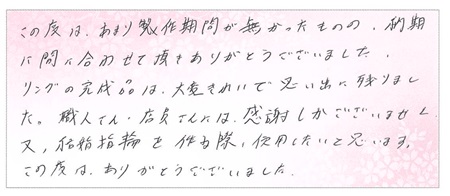 この度は、あまり製作期間が無かったものの、納期
に間に合わせて頂きありがとうございました。
リングの完成品は、大変きれいで思い出に残りまし
た。職人さん・店員さんには、感謝しかございません。
又、結婚指輪を作る際、使用したいと思います。
この度は、ありがとうございました。